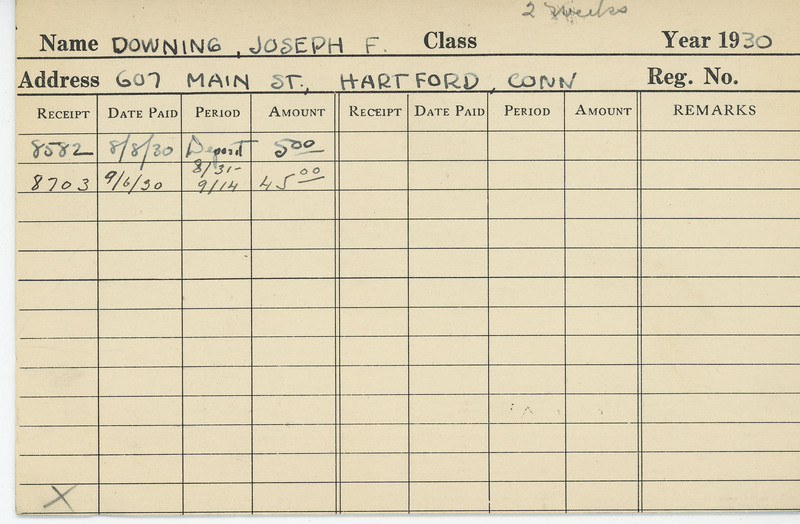 2 weeks
Name DOWNING, JOSEPH F. Class Year 1930
Address 607 MAIN ST., HARTFORD, CONN Reg. No.
RECEIPT DATE PAID PERIOD AMOUNT RECEIPT DATE PAID PERIOD AMOUNT REMARKS
8582 8/8/30 Deposit 5.00
8703 9/6/30 8/31-9/14 45.00
X